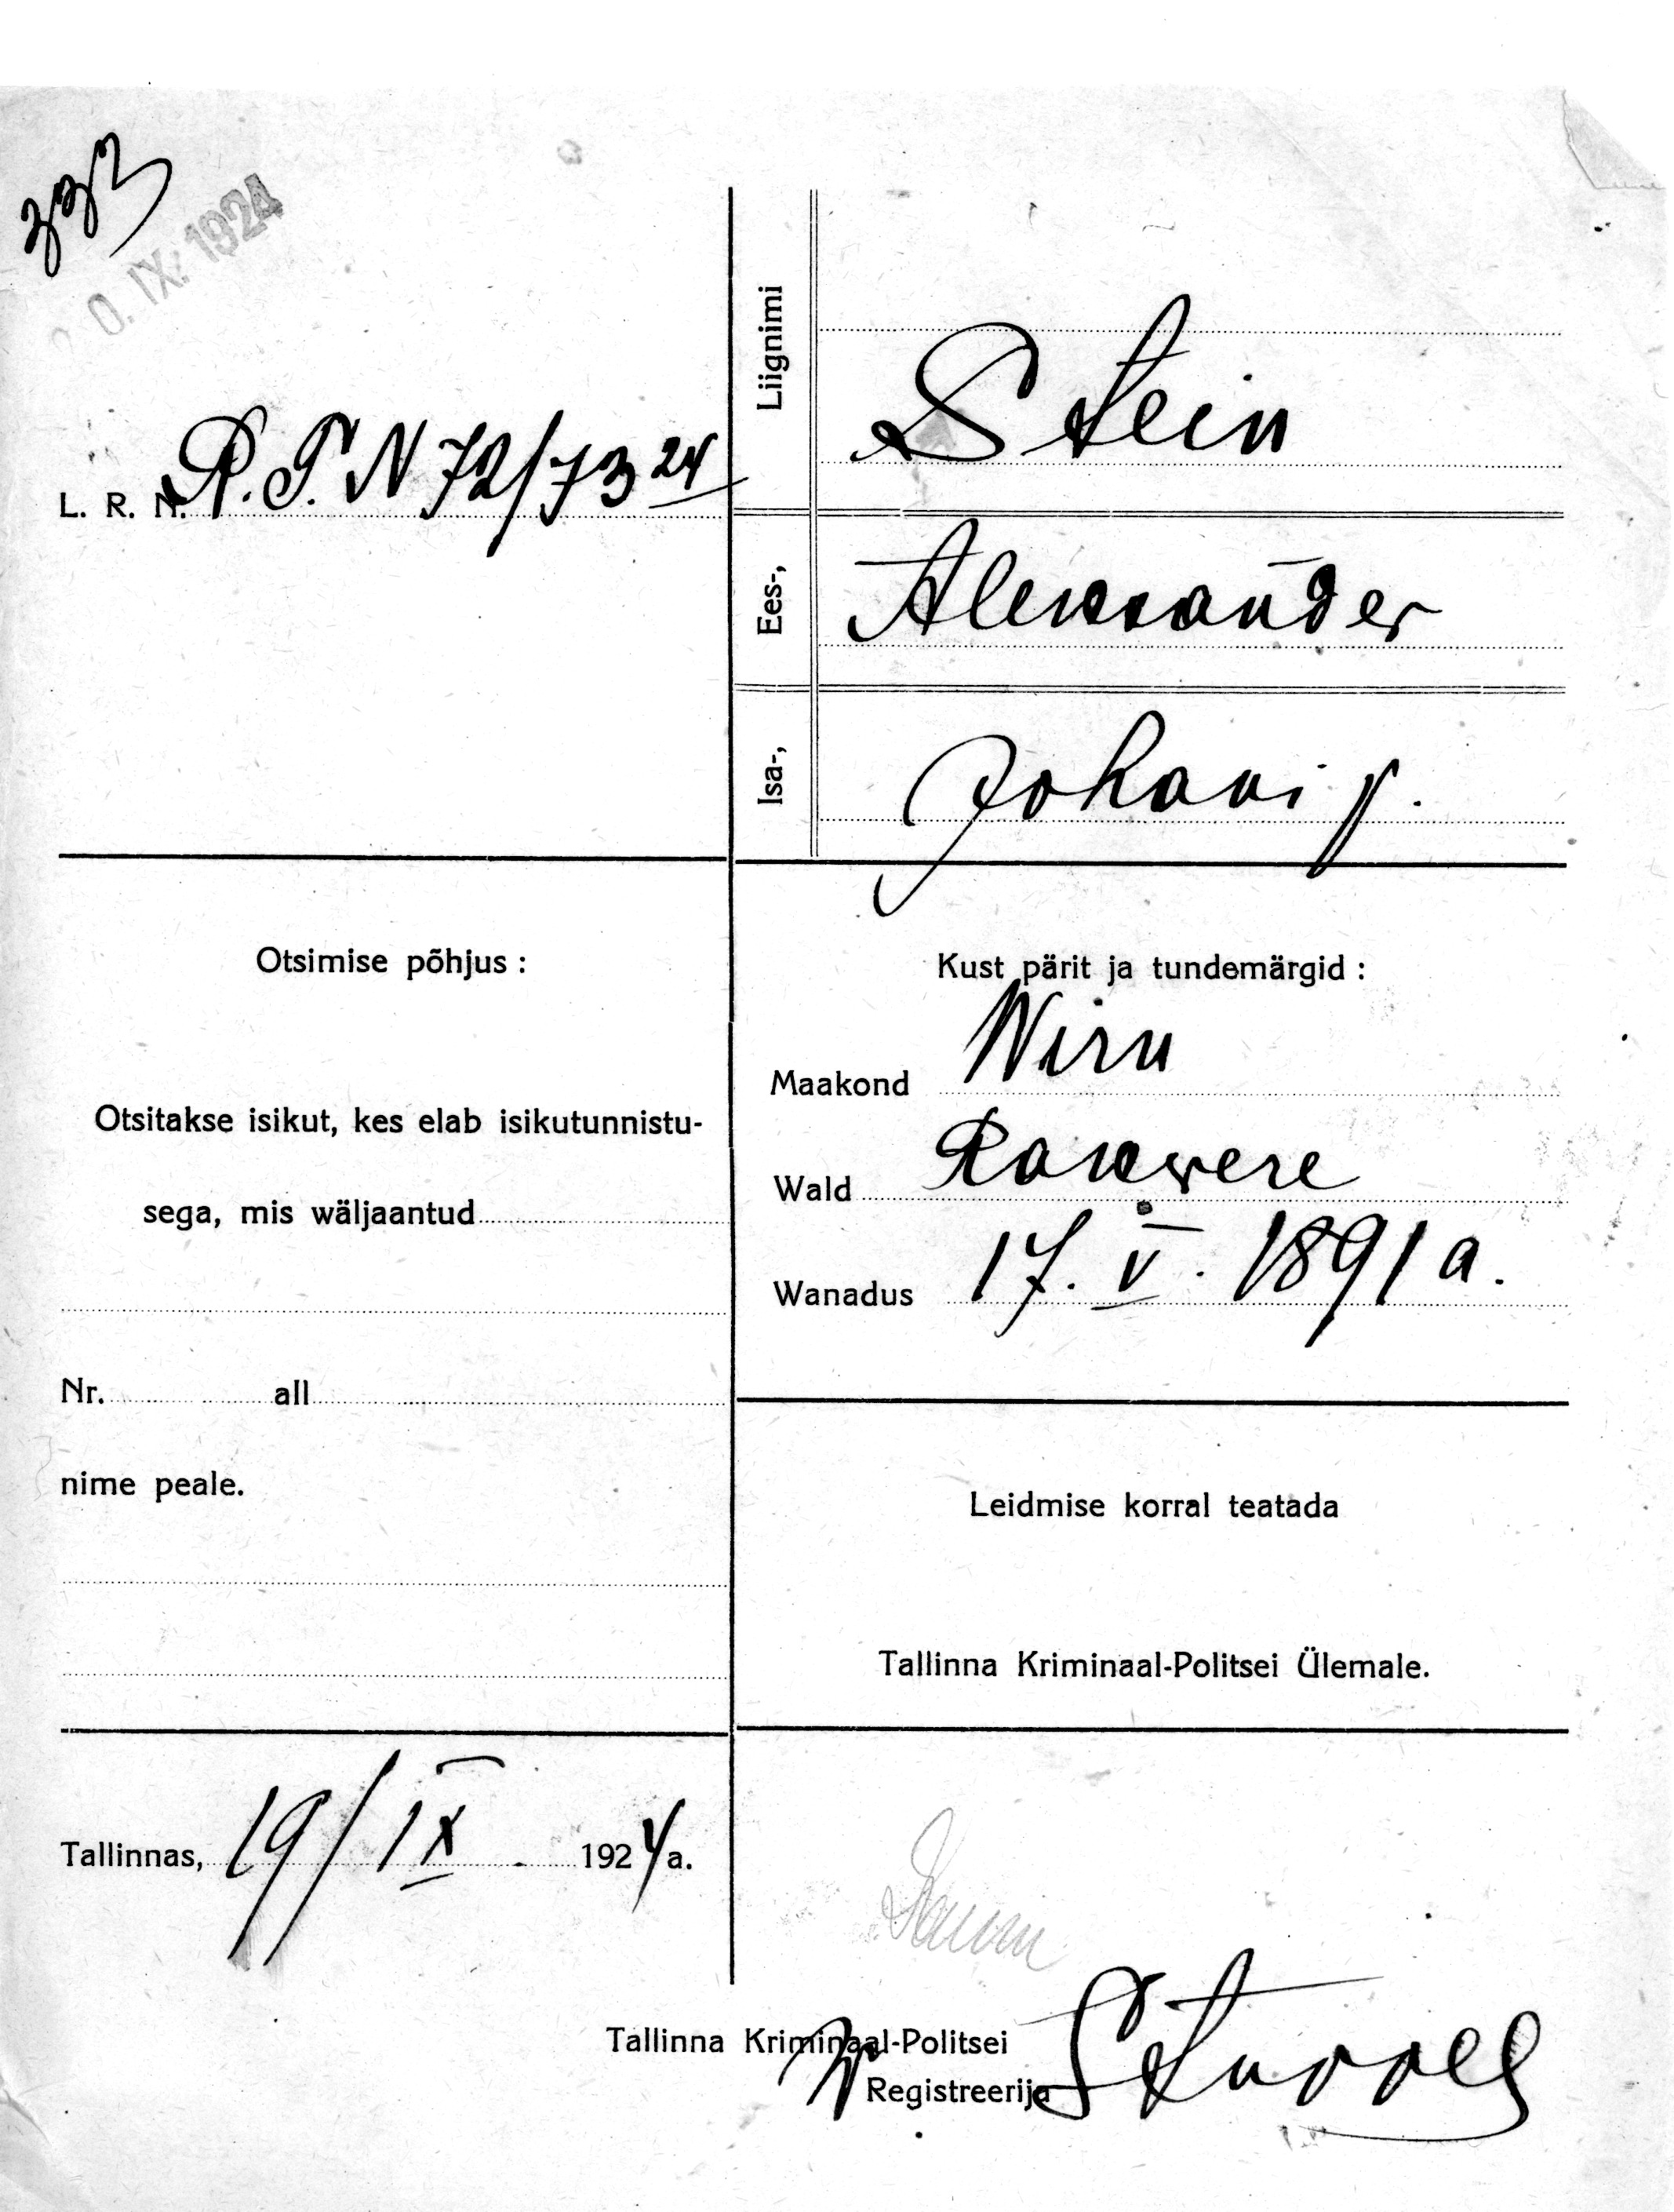 333
0. IX. 1924
L. R. N. R. T. N 72/73 24
Liignimi Stein
Ees-, Aleksander
Isa-, Johani p.
Otsimise põhjus :
Otsitakse isikut, kes elab isikutunnistu-
sega, mis wäljaantud
Nr. all
nime peale.
Kust pärit ja tundemärgid :
Maakond Wiru
Wald Rakwere
Wanadus 17. V. 1891 a.
Leidmise korral teatada
Tallinna Kriminaal-Politsei Ülemale.
Tallinnas, 19/IX 1924 a.
Tallinna Kriminaal-Politsei
Registreerija